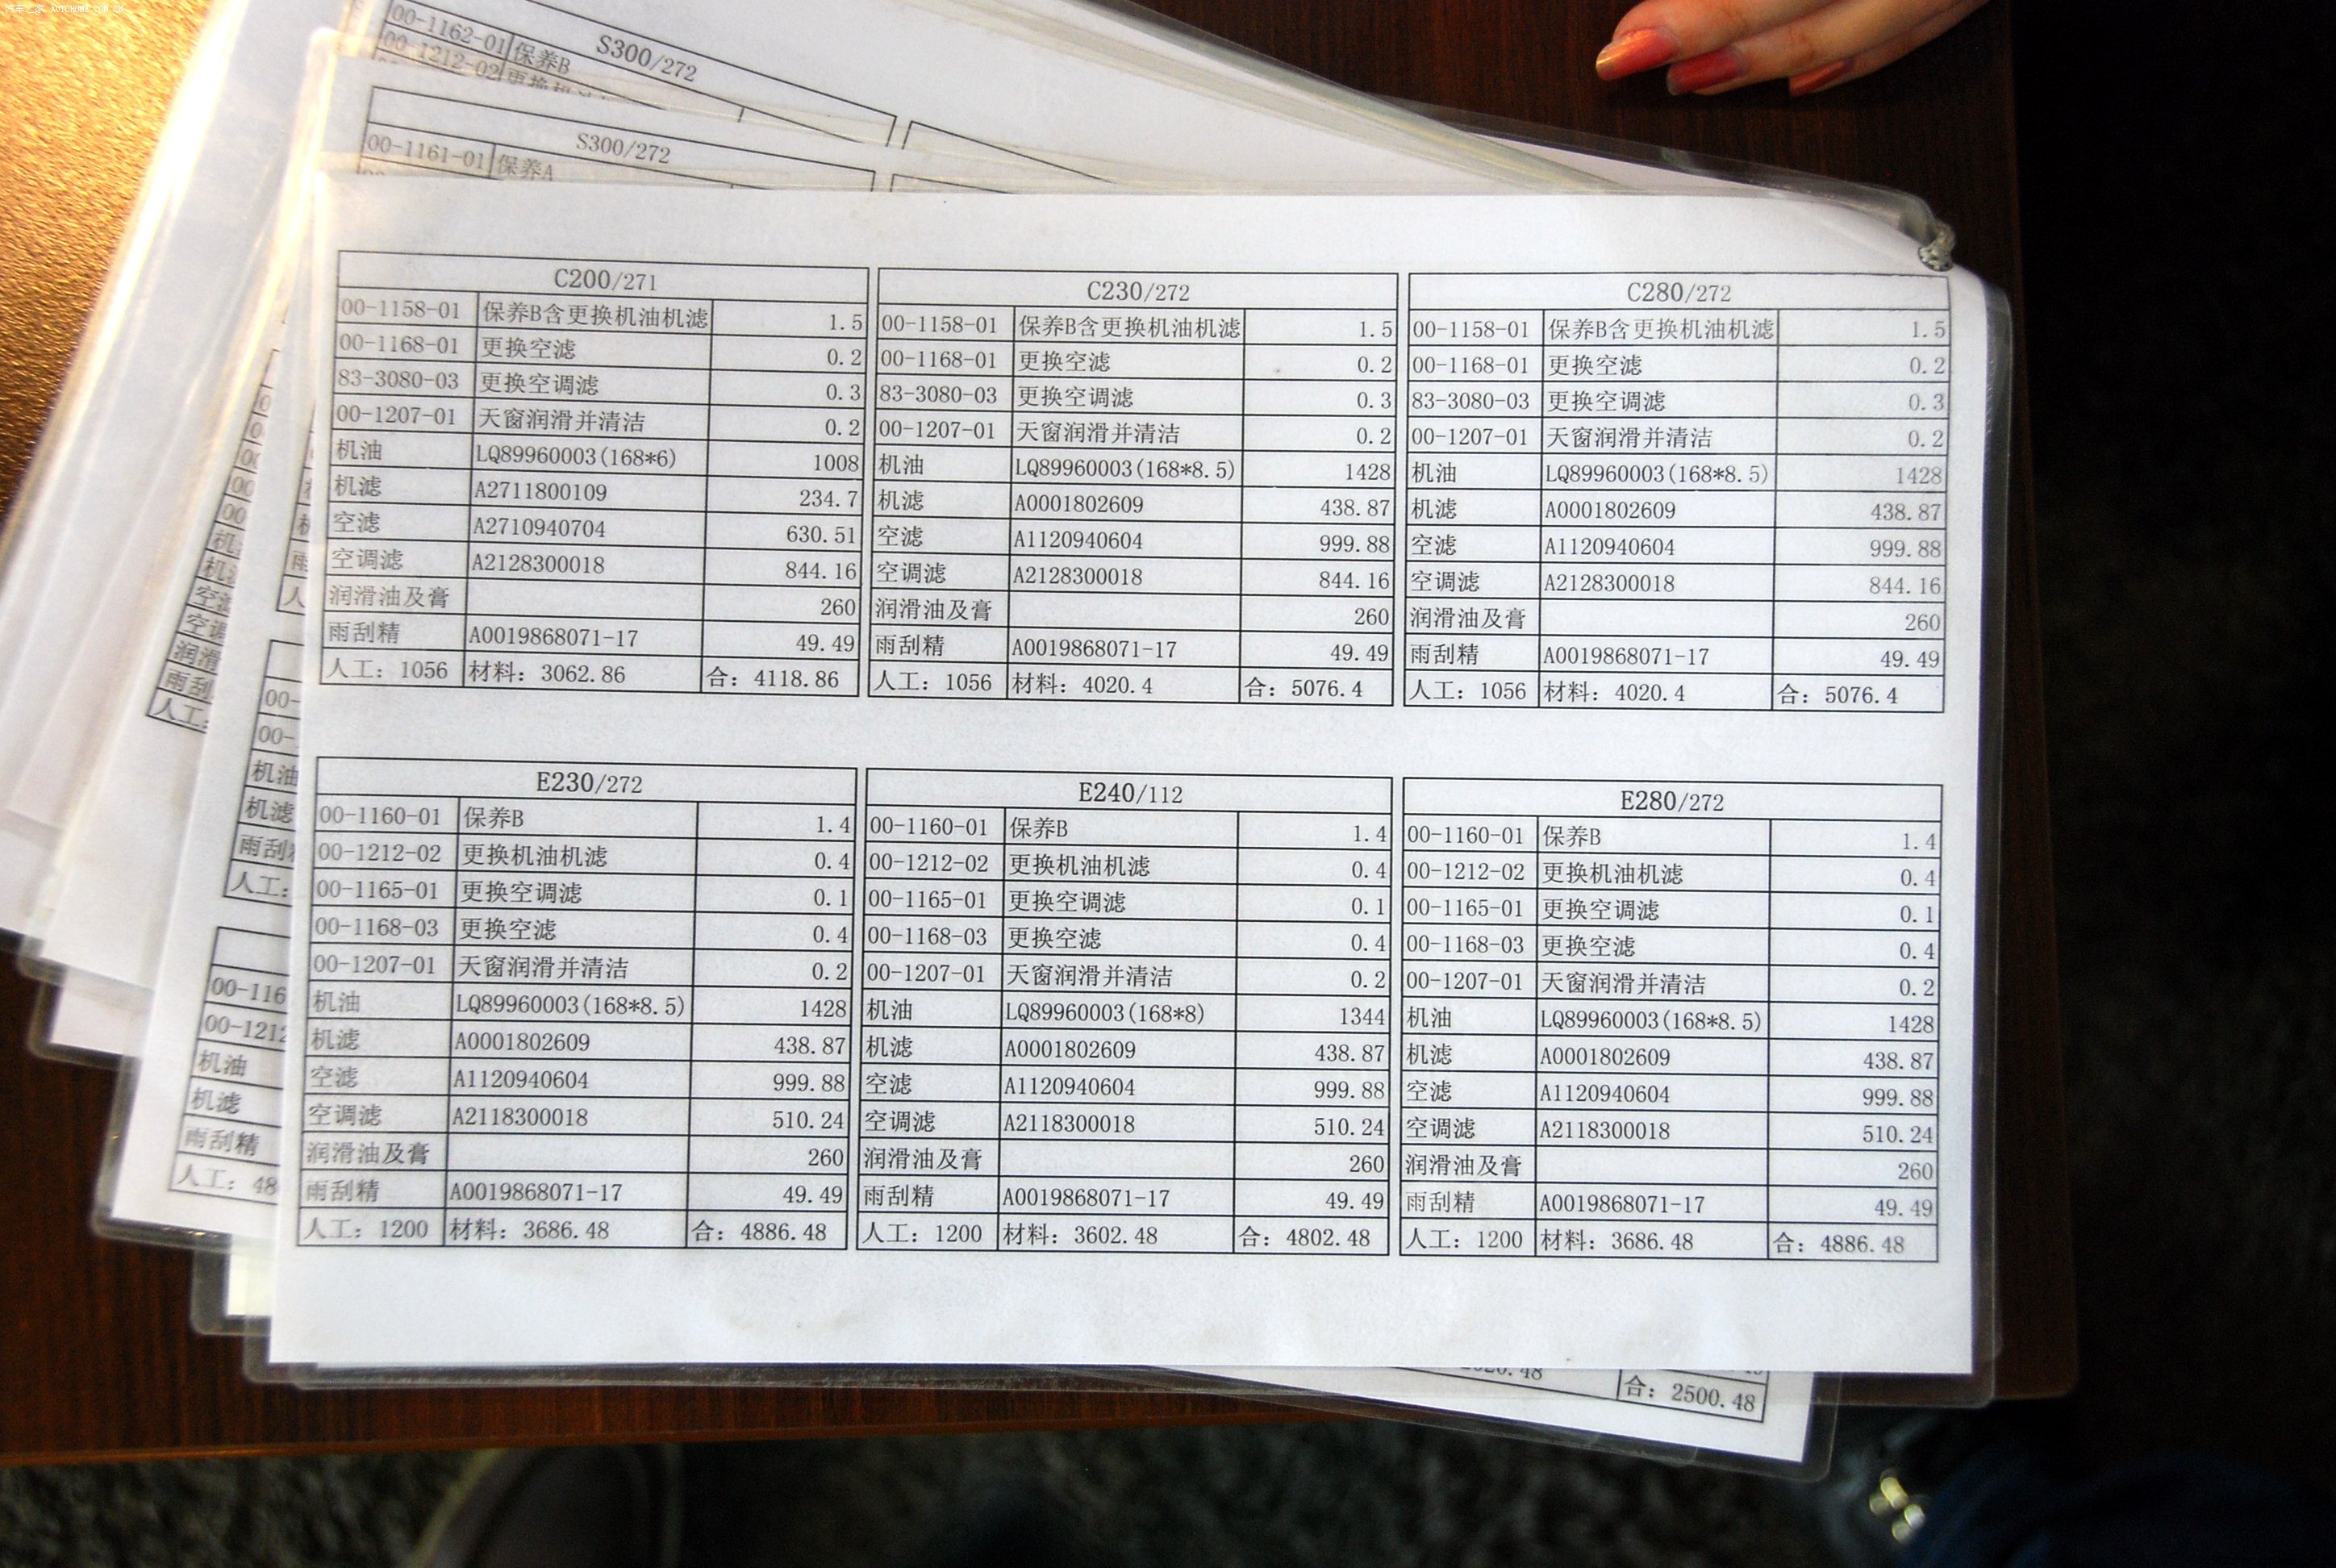 汽车之家 AUTOHOME.COM.CN
00-1162-01 保养B
S300/272
00-1212-02 更换机
S300/272
00-1161-01 保养A
C200/271
00-1158-01 保养B含更换机油机滤 1.5
00-1168-01 更换空滤 0.2
83-3080-03 更换空调滤 0.3
00-1207-01 天窗润滑并清洁 0.2
机油 LQ89960003(168*6) 1008
机滤 A2711800109 234.7
空滤 A2710940704 630.51
空调滤 A2128300018 844.16
润滑油及膏 260
雨刮精 A0019868071-17 49.49
人工: 1056 材料: 3062.86 合: 4118.86
C230/272
00-1158-01 保养B含更换机油机滤 1.5
00-1168-01 更换空滤 0.2
83-3080-03 更换空调滤 0.3
00-1207-01 天窗润滑并清洁 0.2
机油 LQ89960003(168*8.5) 1428
机滤 A0001802609 438.87
空滤 A1120940604 999.88
空调滤 A2128300018 844.16
润滑油及膏 260
雨刮精 A0019868071-17 49.49
人工: 1056 材料: 4020.4 合: 5076.4
C280/272
00-1158-01 保养B含更换机油机滤 1.5
00-1168-01 更换空滤 0.2
83-3080-03 更换空调滤 0.3
00-1207-01 天窗润滑并清洁 0.2
机油 LQ89960003(168*8.5) 1428
机滤 A0001802609 438.87
空滤 A1120940604 999.88
空调滤 A2128300018 844.16
润滑油及膏 260
雨刮精 A0019868071-17 49.49
人工: 1056 材料: 4020.4 合: 5076.4
E230/272
00-1160-01 保养B 1.4
00-1212-02 更换机油机滤 0.4
00-1165-01 更换空调滤 0.1
00-1168-03 更换空滤 0.4
00-1207-01 天窗润滑并清洁 0.2
机油 LQ89960003(168*8.5) 1428
机滤 A0001802609 438.87
空滤 A1120940604 999.88
空调滤 A2118300018 510.24
润滑油及膏 260
雨刮精 A0019868071-17 49.49
人工: 1200 材料: 3686.48 合: 4886.48
E240/112
00-1160-01 保养B 1.4
00-1212-02 更换机油机滤 0.4
00-1165-01 更换空调滤 0.1
00-1168-03 更换空滤 0.4
00-1207-01 天窗润滑并清洁 0.2
机油 LQ89960003(168*8) 1344
机滤 A0001802609 438.87
空滤 A1120940604 999.88
空调滤 A2118300018 510.24
润滑油及膏 260
雨刮精 A0019868071-17 49.49
人工: 1200 材料: 3602.48 合: 4802.48
E280/272
00-1160-01 保养B 1.4
00-1212-02 更换机油机滤 0.4
00-1165-01 更换空调滤 0.1
00-1168-03 更换空滤 0.4
00-1207-01 天窗润滑并清洁 0.2
机油 LQ89960003(168*8.5) 1428
机滤 A0001802609 438.87
空滤 A1120940604 999.88
空调滤 A2118300018 510.24
润滑油及膏 260
雨刮精 A0019868071-17 49.49
人工: 1200 材料: 3686.48 合: 4886.48
机油
机滤
雨刮
人工:
00-116
00-1212
机油
机滤
雨刮精
人工: 48
合: 2500.48